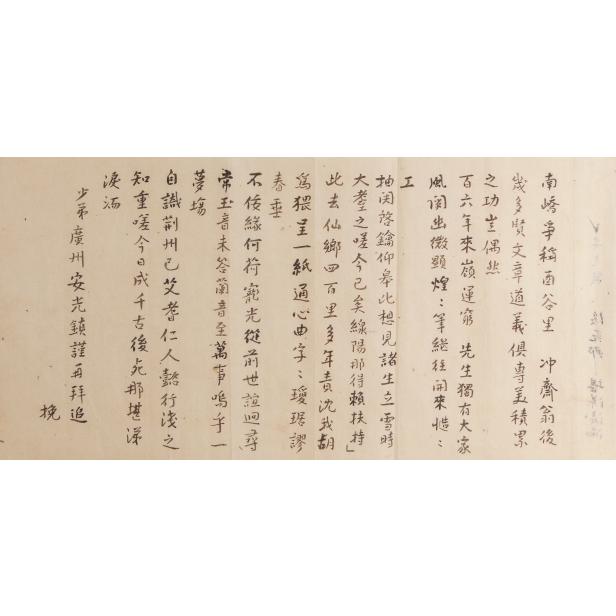 南嶠爭稱酉谷里 冲齋翁後
幾多賢文章道義俱專美積累
之功豈偶然
百六年來嶺運窮 先生獨有大家
風閔幽微顯煌〻筆継徃開來慥〻
工
抽関啓鑰仰皋比想見諸生立雪時
大耋之嗟今已矣線陽那得賴扶持
此去仙鄉四百里多年責沈我胡
爲猥呈一紙通心曲字〻瓊琚謬
春垂
不侫緣何荷寵光從前世誼迥尋
常玉音未答蘭音至萬事嗚乎一
夢塲
自識荆州已艾耆仁人懿行淺之
知重嗟今日成千古後死那堪涕
淚洏
少弟廣州安光鎮謹再拜追
挽